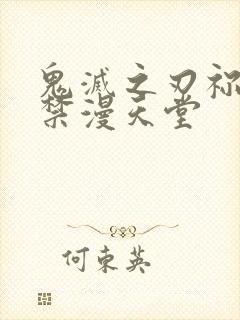 鬼滅之刃祢
禁漫天堂
何東英